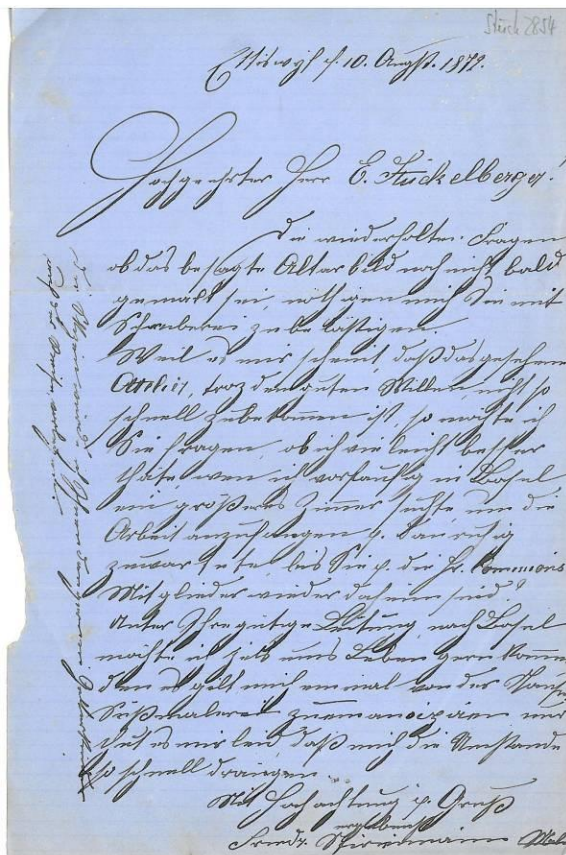 Stück 2854
Ettiswyl d. 10. Augst. 1872.
Hochgeehrter Herr E. Stückelberger!
Die wiederholten Fragen
ob das besagte Altarbild noch nicht bald
gemalt sei, nöthigen mich Sie mit
Schreiberei zu belästigen.
Weil es mir scheint, daß das gesehene
Attelier, troz dem guten Willen, nicht so
schnell zubekommen ist, so möchte ich
Sie fragen, ob ich vieleicht besser
thäte wen ich vorläufig in Basel
ein größeres Zimer suchte, um die
Arbeit anzufangen u. dan ruhig
zuwartete, bis Sie u. die Hr. Commions
Mitglieder wieder daheim sind?
Unter Ihre gütige Leitung nach Basel
möchte ich jezt ums Leben gern komen
den es gilt mich einmal von der
Süßmalerei zu emancipieren, nur
thut es mir leid daß mich die Umstände
so schnell drängen
Mit Hochachtung u. Gruß
ergebenst
Friedr. Maler